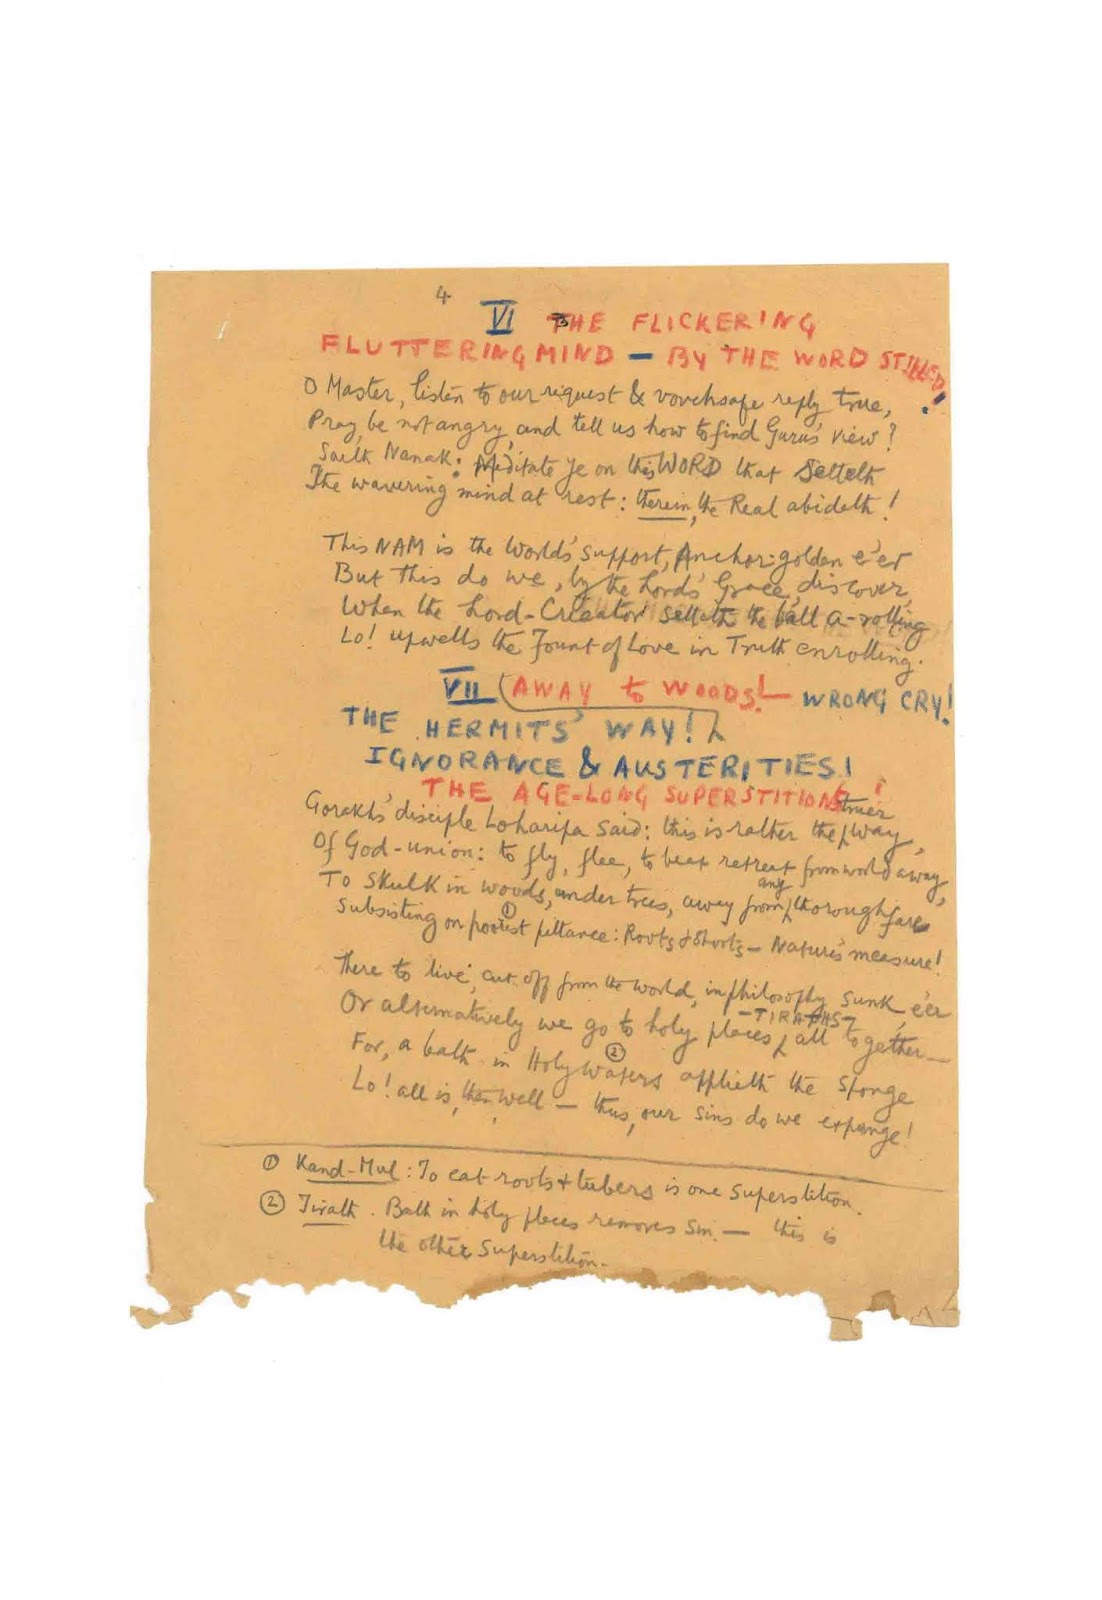 4
VI THE FLICKERING
FLUTTERING MIND — BY THE WORD STILLED!
O Master, listen to our request & vouchsafe reply true,
Pray, be not angry, and tell us how to find Guru's view?
Saith Nanak: Meditate ye on this WORD that Setteth
The wavering mind at rest: therein, the Real abideth!
This NAM is the World's support, Anchor-golden e'er
But this do we, by the Lord's Grace, discover,
When the Lord-Creator setteth the ball a-rolling
Lo! upwells the Fount of Love in Truth enrolling.
VII (AWAY to WOODS! — WRONG CRY!
THE HERMITS' WAY!
IGNORANCE & AUSTERITIES!
THE AGE-LONG SUPERSTITIONS!
Gorakh's disciple Loharipa said: this is rather the truer way,
Of God-union: to fly, flee, to beat retreat from world away,
To skulk in woods, under trees, away from any thoroughfare
Subsisting on poorest pittance: ① Roots & Shoots — Nature's measure!
There to live, cut off from the world, in philosophy sunk e'er
Or alternatively we go to holy places, -TIRATHS- all together—
For, a bath in Holy Waters ② applieth the Sponge
Lo! all is, then well — thus, our sins do we expunge!
① Kand-Mul: To eat roots & tubers is one Superstition.
② Tirath. Bath in holy places removes Sin. — this is
the other Superstition.